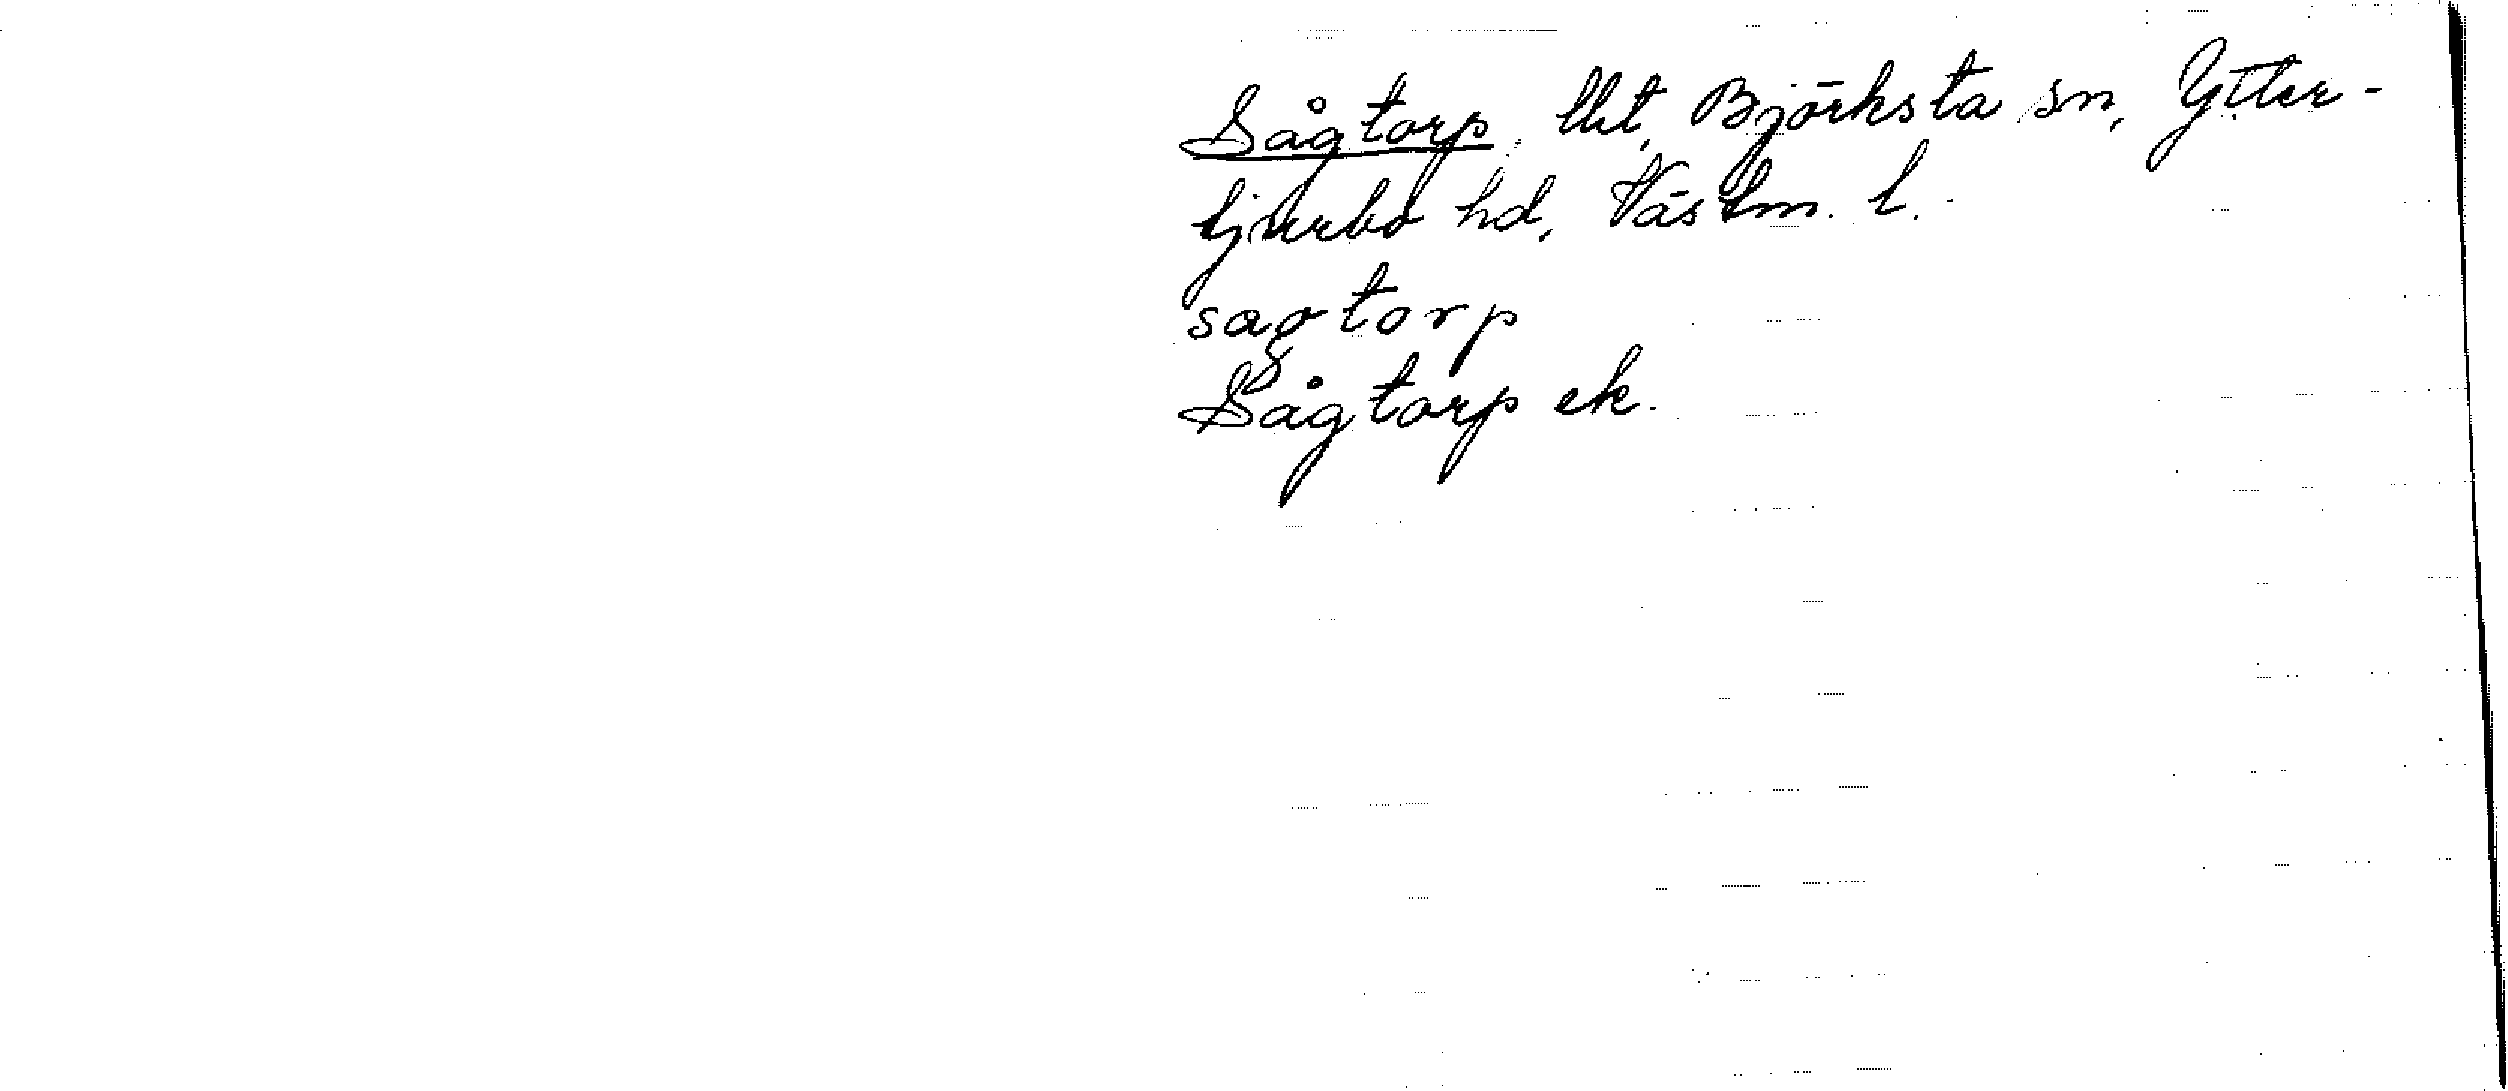 Sågtorp, lht, Björksta sn, Ytter-
tjurbo hd, Västm. l.
sagtorp
Sågtorp ek.